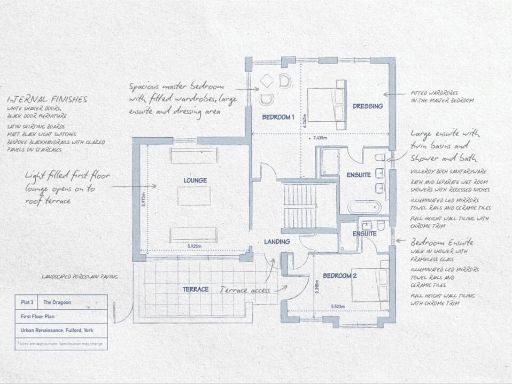 INTERNAL FINISHES
WHITE SHAKER DOORS,
BLACK DOOR FURNITURE
SATIN SKIRTING BOARDS
MATT BLACK LIGHT SWITCHES
BESPOKE BLACK HANDRAILS WITH GLAZED
PANELS ON STAIRCASES
Spacious master bedroom
with fitted wardrobes, large
ensuite and dressing area
Light filled first floor
lounge opens on to
roof terrace
LANDSCAPED PORCELAIN PAVING
BEDROOM 1
DRESSING
7.435m
LOUNGE
5.925m
ENSUITE
LANDING
ENSUITE
BEDROOM 2
5.523m
TERRACE
Terrace access
FITTED WARDROBES
IN THE MASTER BEDROOM
Large ensuite with
twin basins and
shower and bath
VILLEROY BOCH SANITARYWARE
BATH AND SEPARATE WET ROOM
SHOWERS WITH RECESSED NICHES
ILLUMINATED LED MIRRORS
TOWEL RAILS AND CERAMIC TILES
FULL HEIGHT WALL TILING WITH
CHROME TRIM
Bedroom Ensuite
WALK IN SHOWER WITH
FRAMELESS GLASS
ILLUMINATED LED MIRRORS
TOWEL RAILS AND
CERAMIC TILES
FULL HEIGHT WALL TILING
WITH CHROME TRIM
Plot 3 The Dragoon
First Floor Plan
Urban Renaissance, Fulford, York
*Sizes are approximate. Specification may change